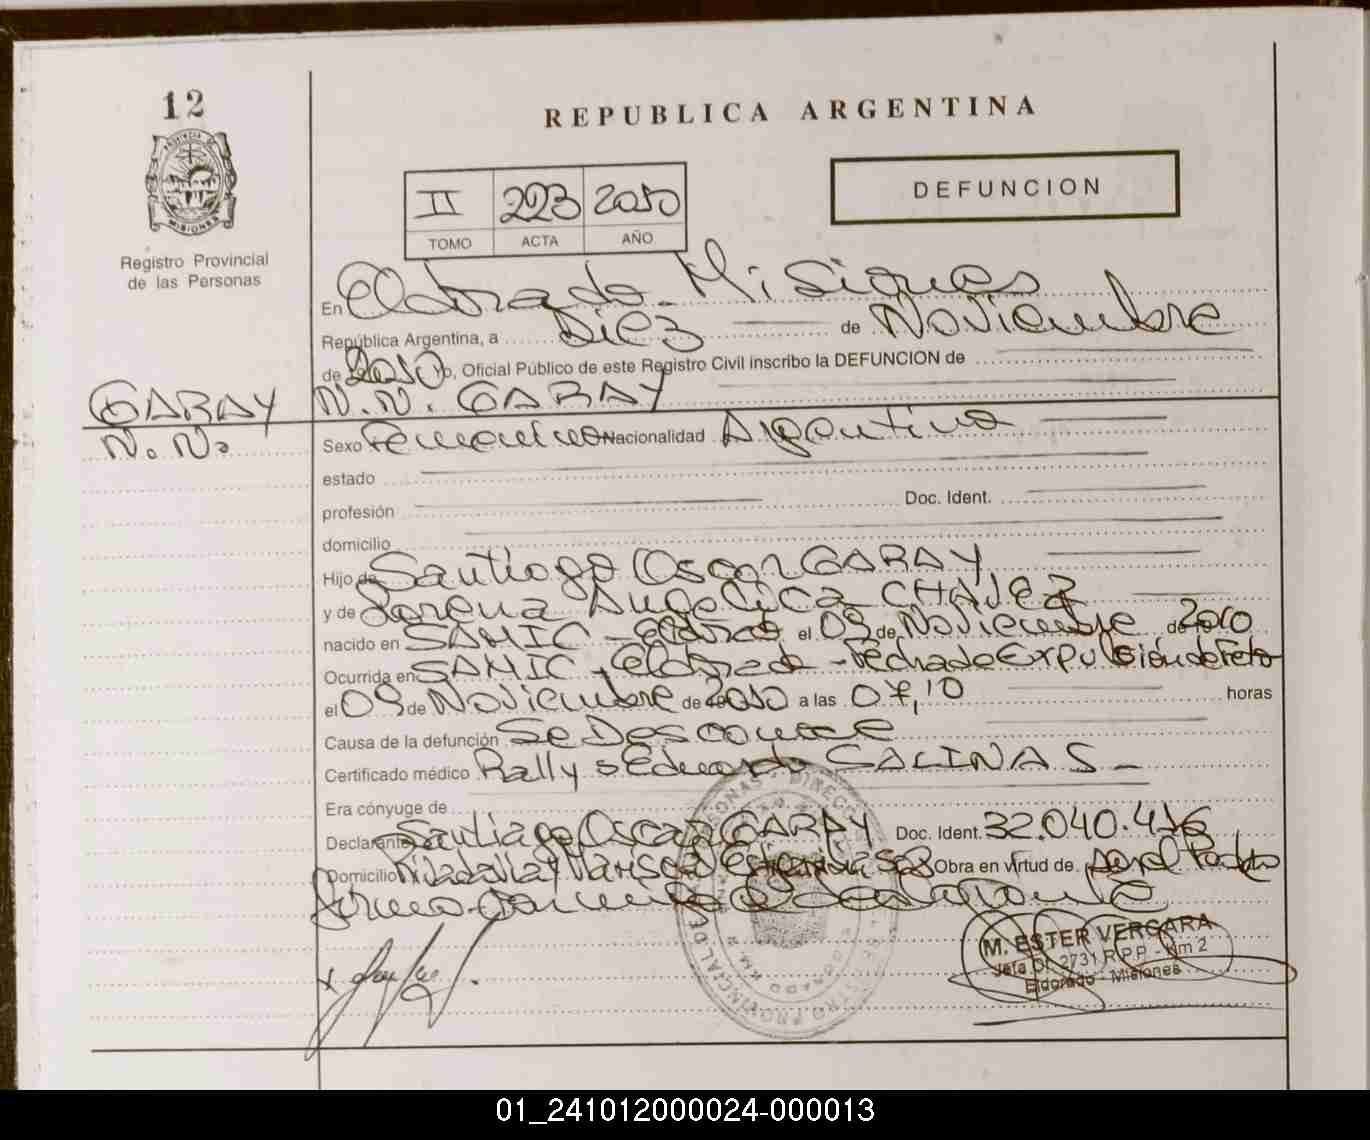 12
REPUBLICA ARGENTINA
PROVINCIA DE
MISIONES
Registro Provincial
de las Personas
II 223 2010
TOMO ACTA AÑO
DEFUNCION
En Eldorado - Misiones
República Argentina, a Diez de Noviembre
de 2010, Oficial Público de este Registro Civil inscribo la DEFUNCION de
GARAY
N. N.
N. N. GARAY
Sexo Femenino Nacionalidad Argentina
estado
profesión Doc. Ident.
domicilio
Hijo de Santiago Oscar GARAY
y de Lorena Angelica CHAVEZ
nacido en SAMIC - Eldorado el 09 de Noviembre de 2010
Ocurrida en SAMIC - Eldorado - Fecha de Expulsión de Feto
el 09 de Noviembre de 2010 a las 07,10 horas
Causa de la defunción Se Desconoce
Certificado médico Rally Eduardo SALINAS -
Era cónyuge de
Declarante Santiago Oscar GARAY Doc. Ident. 32.040.416
Domicilio Rivadavia y Obra en virtud de ser el Padre
firma declarante
M. ESTER VERGARA
Jefa Of. 2731 R.P.P. - Km 2
Eldorado - Misiones
01_241012000024-000013